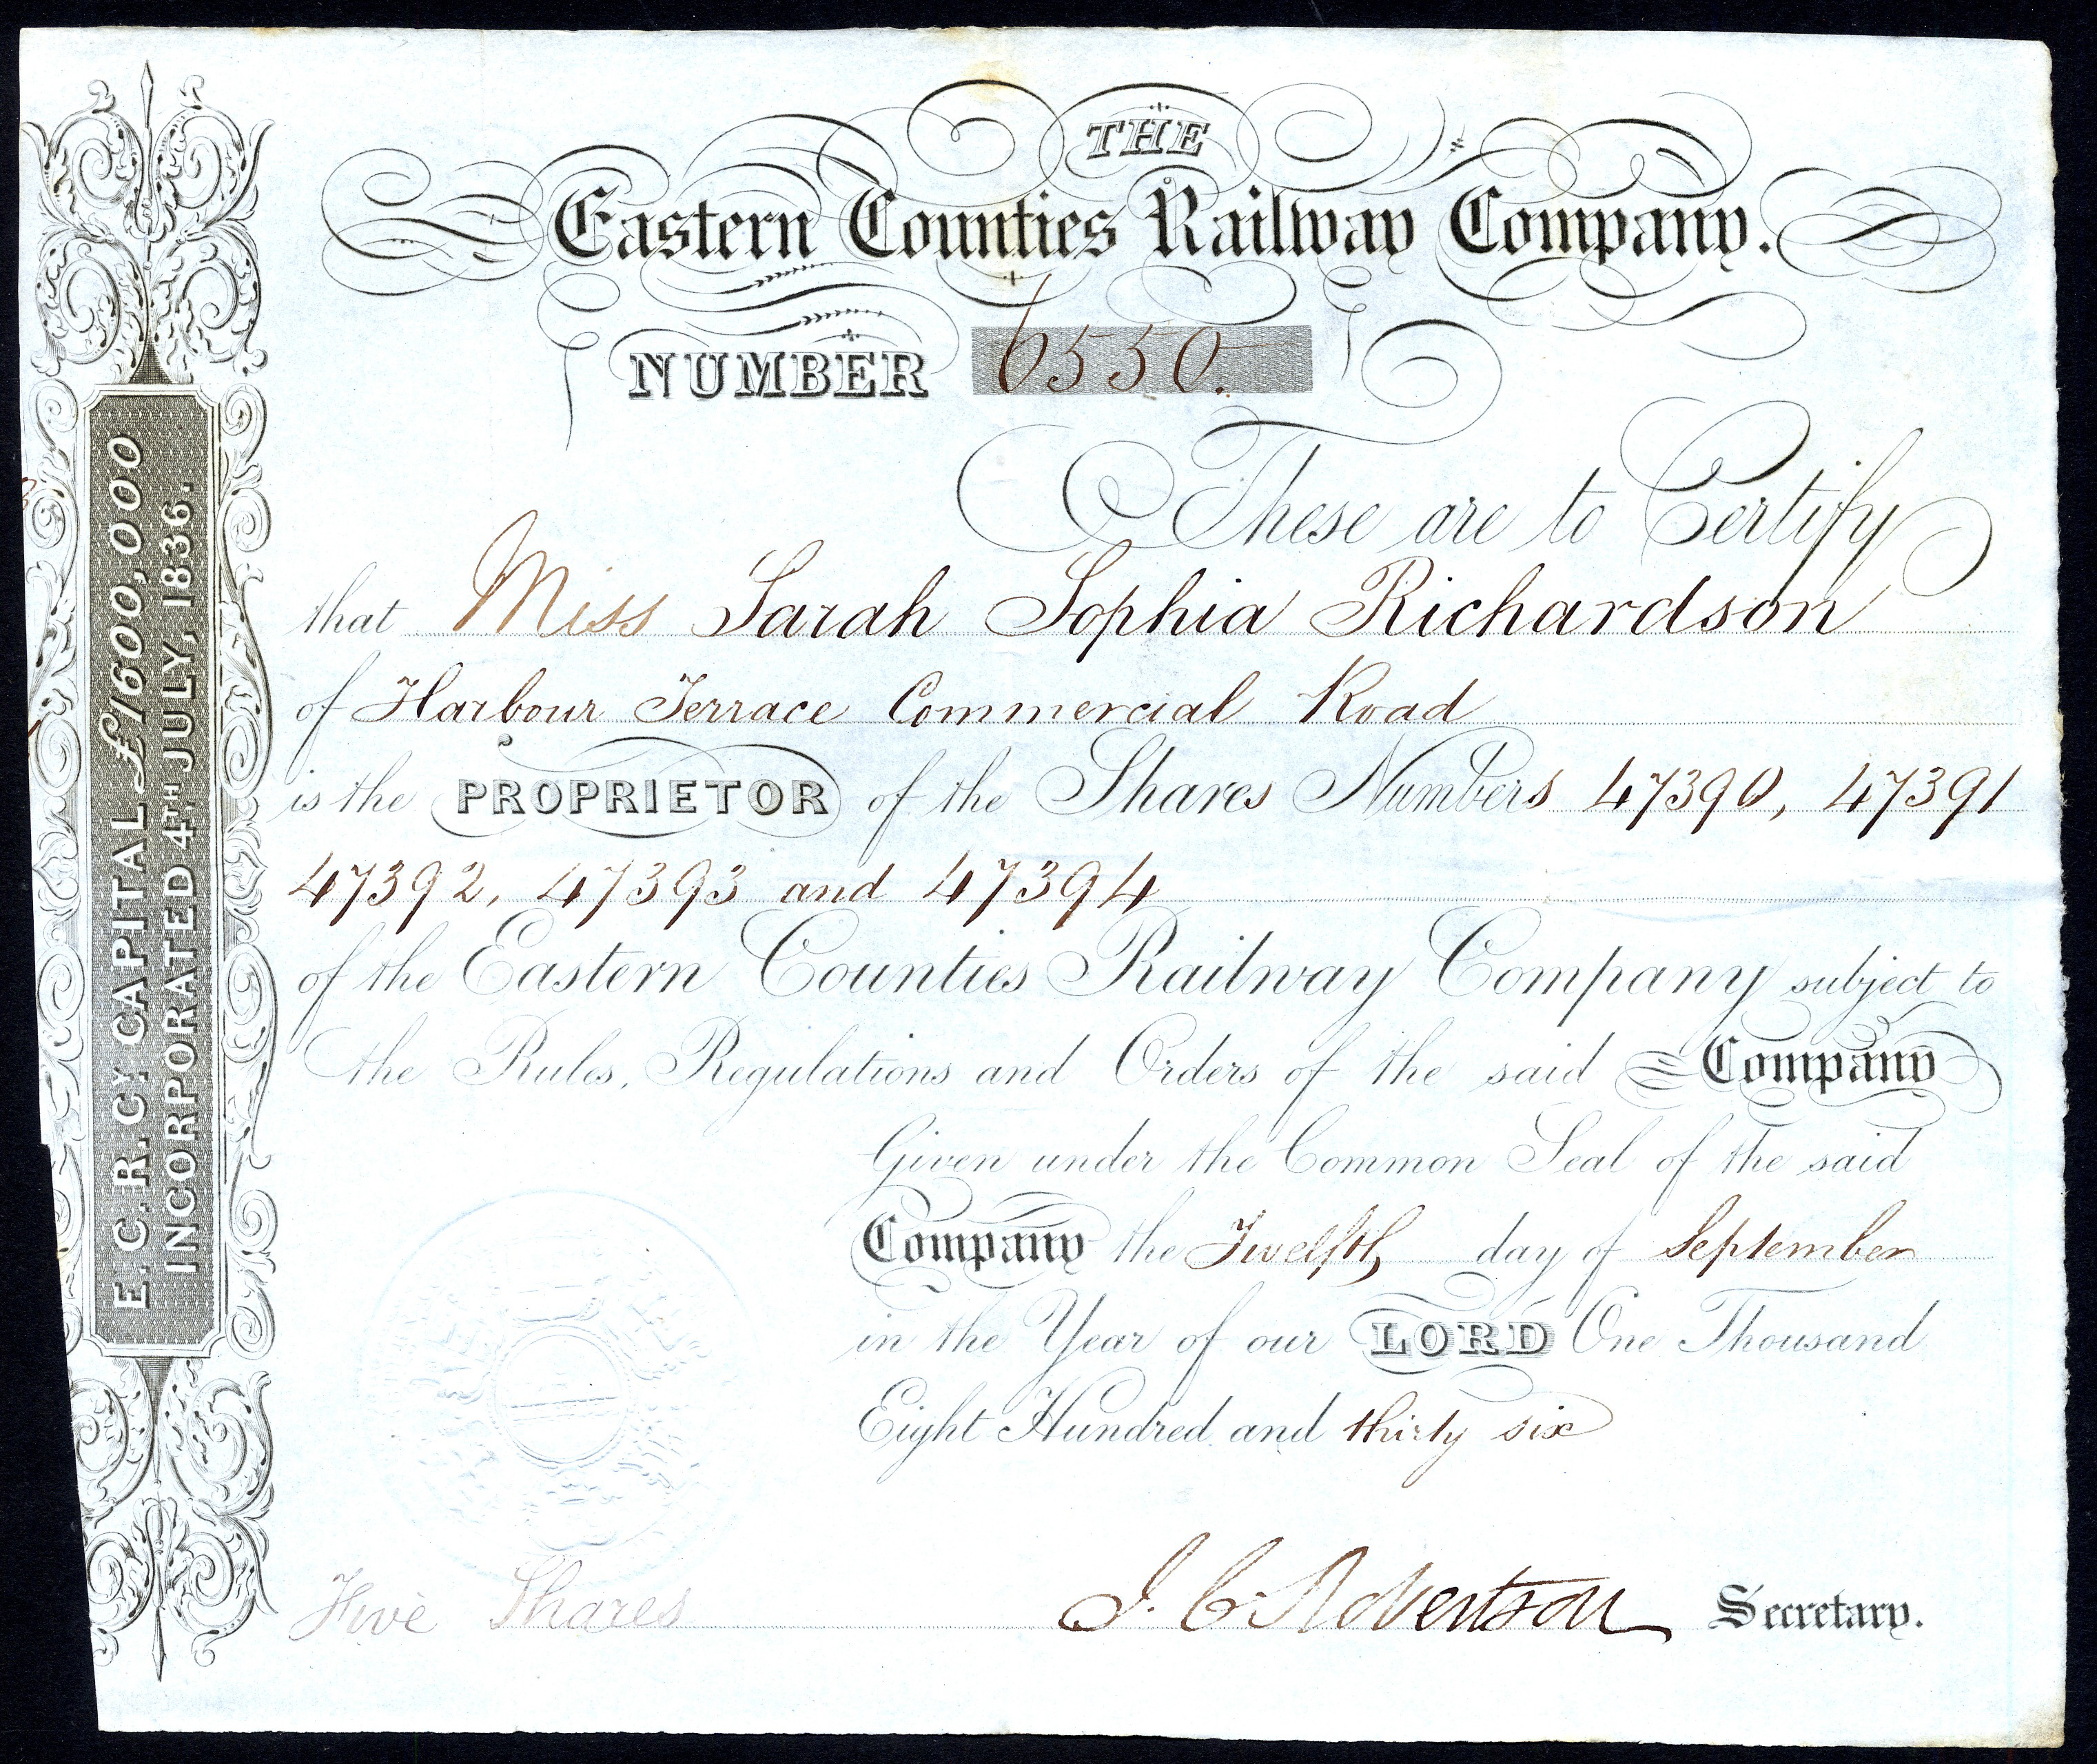 THE
Eastern Counties Railway Company.
NUMBER 6550.
These are to Certify
that Miss Sarah Sophia Richardson
of Harbour Terrace Commercial Road
is the PROPRIETOR of the Shares Numbers 47390, 47391
47392, 47393 and 47394
of the Eastern Counties Railway Company subject to
the Rules, Regulations and Orders of the said Company
Given under the Common Seal of the said
Company the Twelfth day of September
in the Year of our LORD One Thousand
Eight Hundred and thirty six
Five Shares
J. C. Robertson Secretary.
E. C. R. CY. CAPITAL £1600,000
INCORPORATED 4TH JULY, 1836.